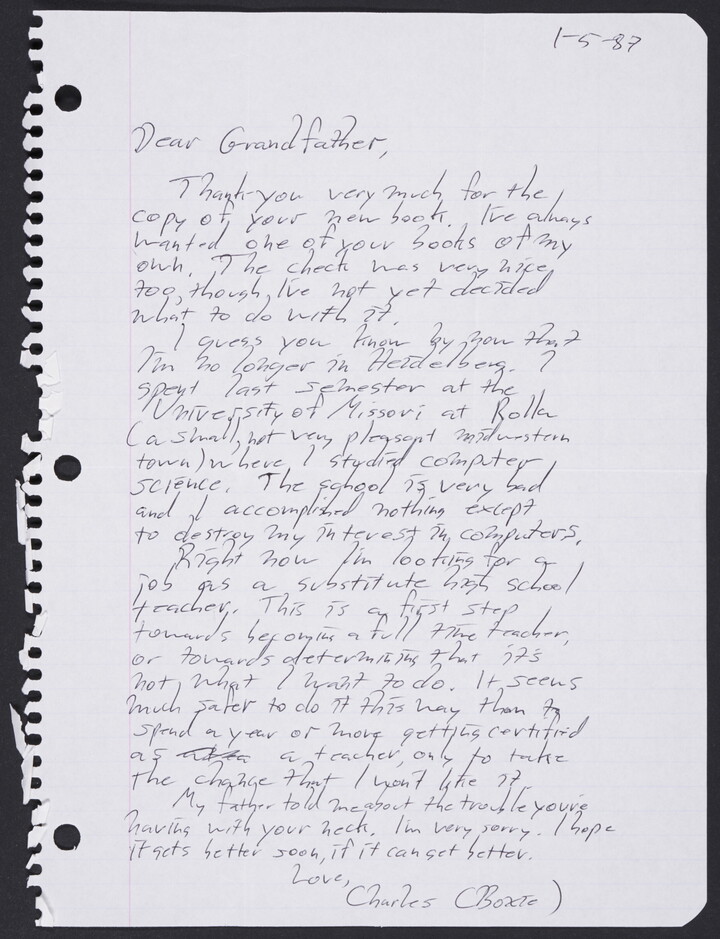 1-5-87
Dear Grandfather,
Thank you very much for the
copy of your new book. I've always
wanted one of your books of my
own. The check was very nice
too, though I've not yet decided
what to do with it.
I guess you know by now that
I'm no longer in Heidelberg. I
spent last semester at the
University of Missori at Rolla
(a small, not very pleasant midwestern
town) where I studied computer
science. The school is very bad
and I accomplished nothing except
to destroy my interest in computers.
Right now I'm looking for a
job as a substitute high school
teacher. This is a first step
towards becoming a full time teacher,
or towards determining that it's
not what I want to do. It seems
much safer to do it this way than to
spend a year or more getting certified
as a teacher, only to take
the change that I won't like it.
My father told me about the trouble you're
having with your neck. I'm very sorry. I hope
it gets better soon, if it can get better.
Love,
Charles (Boxie)